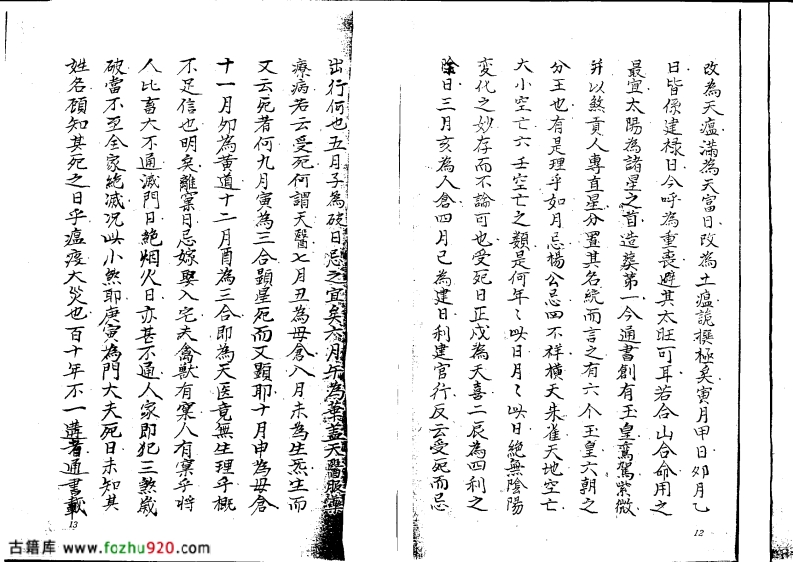 改為天瘟滿為天富日改為土瘟詭撰極矣寅月甲日卯月乙
日皆係建祿日今呼為重喪避其太旺可耳若合山合命用之
最宜太陽為諸星之首造葬第一今通書創有玉皇鸞駕紫微
并以煞貢人專直星分置其名統而言之有六个玉皇六朝之
分王也有是理乎如月忌楊公忌四不祥橫天朱雀天地空亡
大小空亡六壬空亡之類是何年〻此日月〻此日絕無陰陽
変化之妙存而不論可也受死日正戌為天喜二辰為四利之
除日三月亥為人倉四月巳為建日利建官行反云受死而忌
12
出行何也五月子為破日忌之宜矣六月午為葉蓋天醫服藥
療病若云受死何謂天醫七月丑為母倉八月未為生炁生而
又云死者何九月寅為三合顯星死而又顯耶十月申為母倉
十一月卯為黃道十二月酉為三合即為天医竟無生理乎概
不足信也明矣離窠日忌嫁娶入宅夫禽獸有窠人有窠乎將
人比畜大不通滅門日絕烟火日亦甚不通人家即犯三煞歲
破當不至全家絕滅况此小煞耶庚寅為門大夫死日未知其
姓名碩知其死之日乎瘟疫大災也百十年不一遘者通書載
13
古籍库 www.fozhu920.com